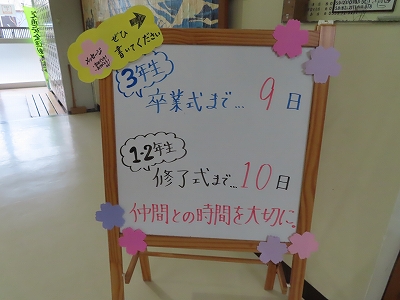 ぜひ
書いてください
メッセージ
3年生
卒業式まで... 9日
1-2年生
修了式まで... 10日
仲間との時間を大切に